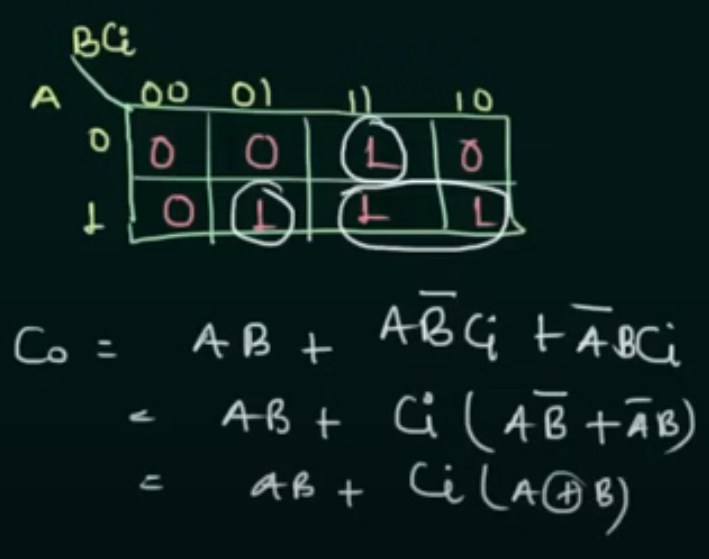 BCi
A 00 01 11 10
0 0 0 1 0
1 0 1 1 1
Co = AB + AB̅Ci + A̅BCi
= AB + Ci (AB̅ + A̅B)
= AB + Ci (A⊕B)